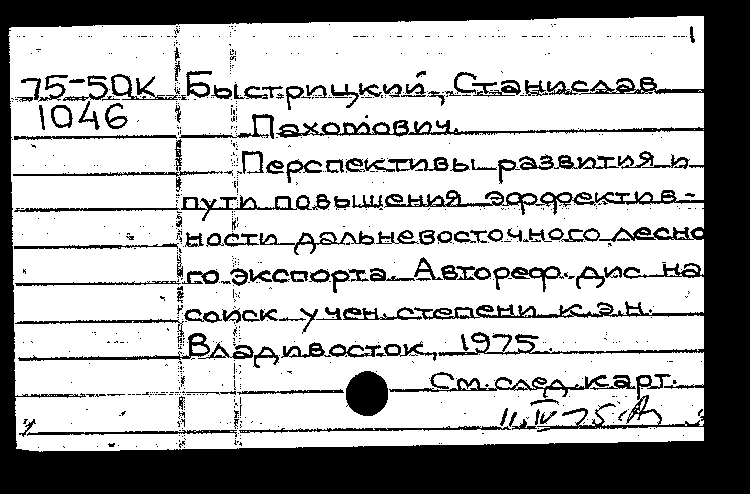 1
75-5DK Быстрицкий, Станислав
1046 Пахомович.
Перспективы развития и
пути повышения эффектив-
ности дальневосточного лесно
го экспорта. Автореф. дис. на
соиск учен. степени к.э.н.
Владивосток, 1975.
См. след. карт.
11.IV-75